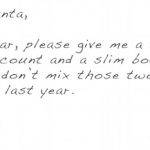 nta,
ar, please give me a
count and a slim bo
don't mix those tw
last year.